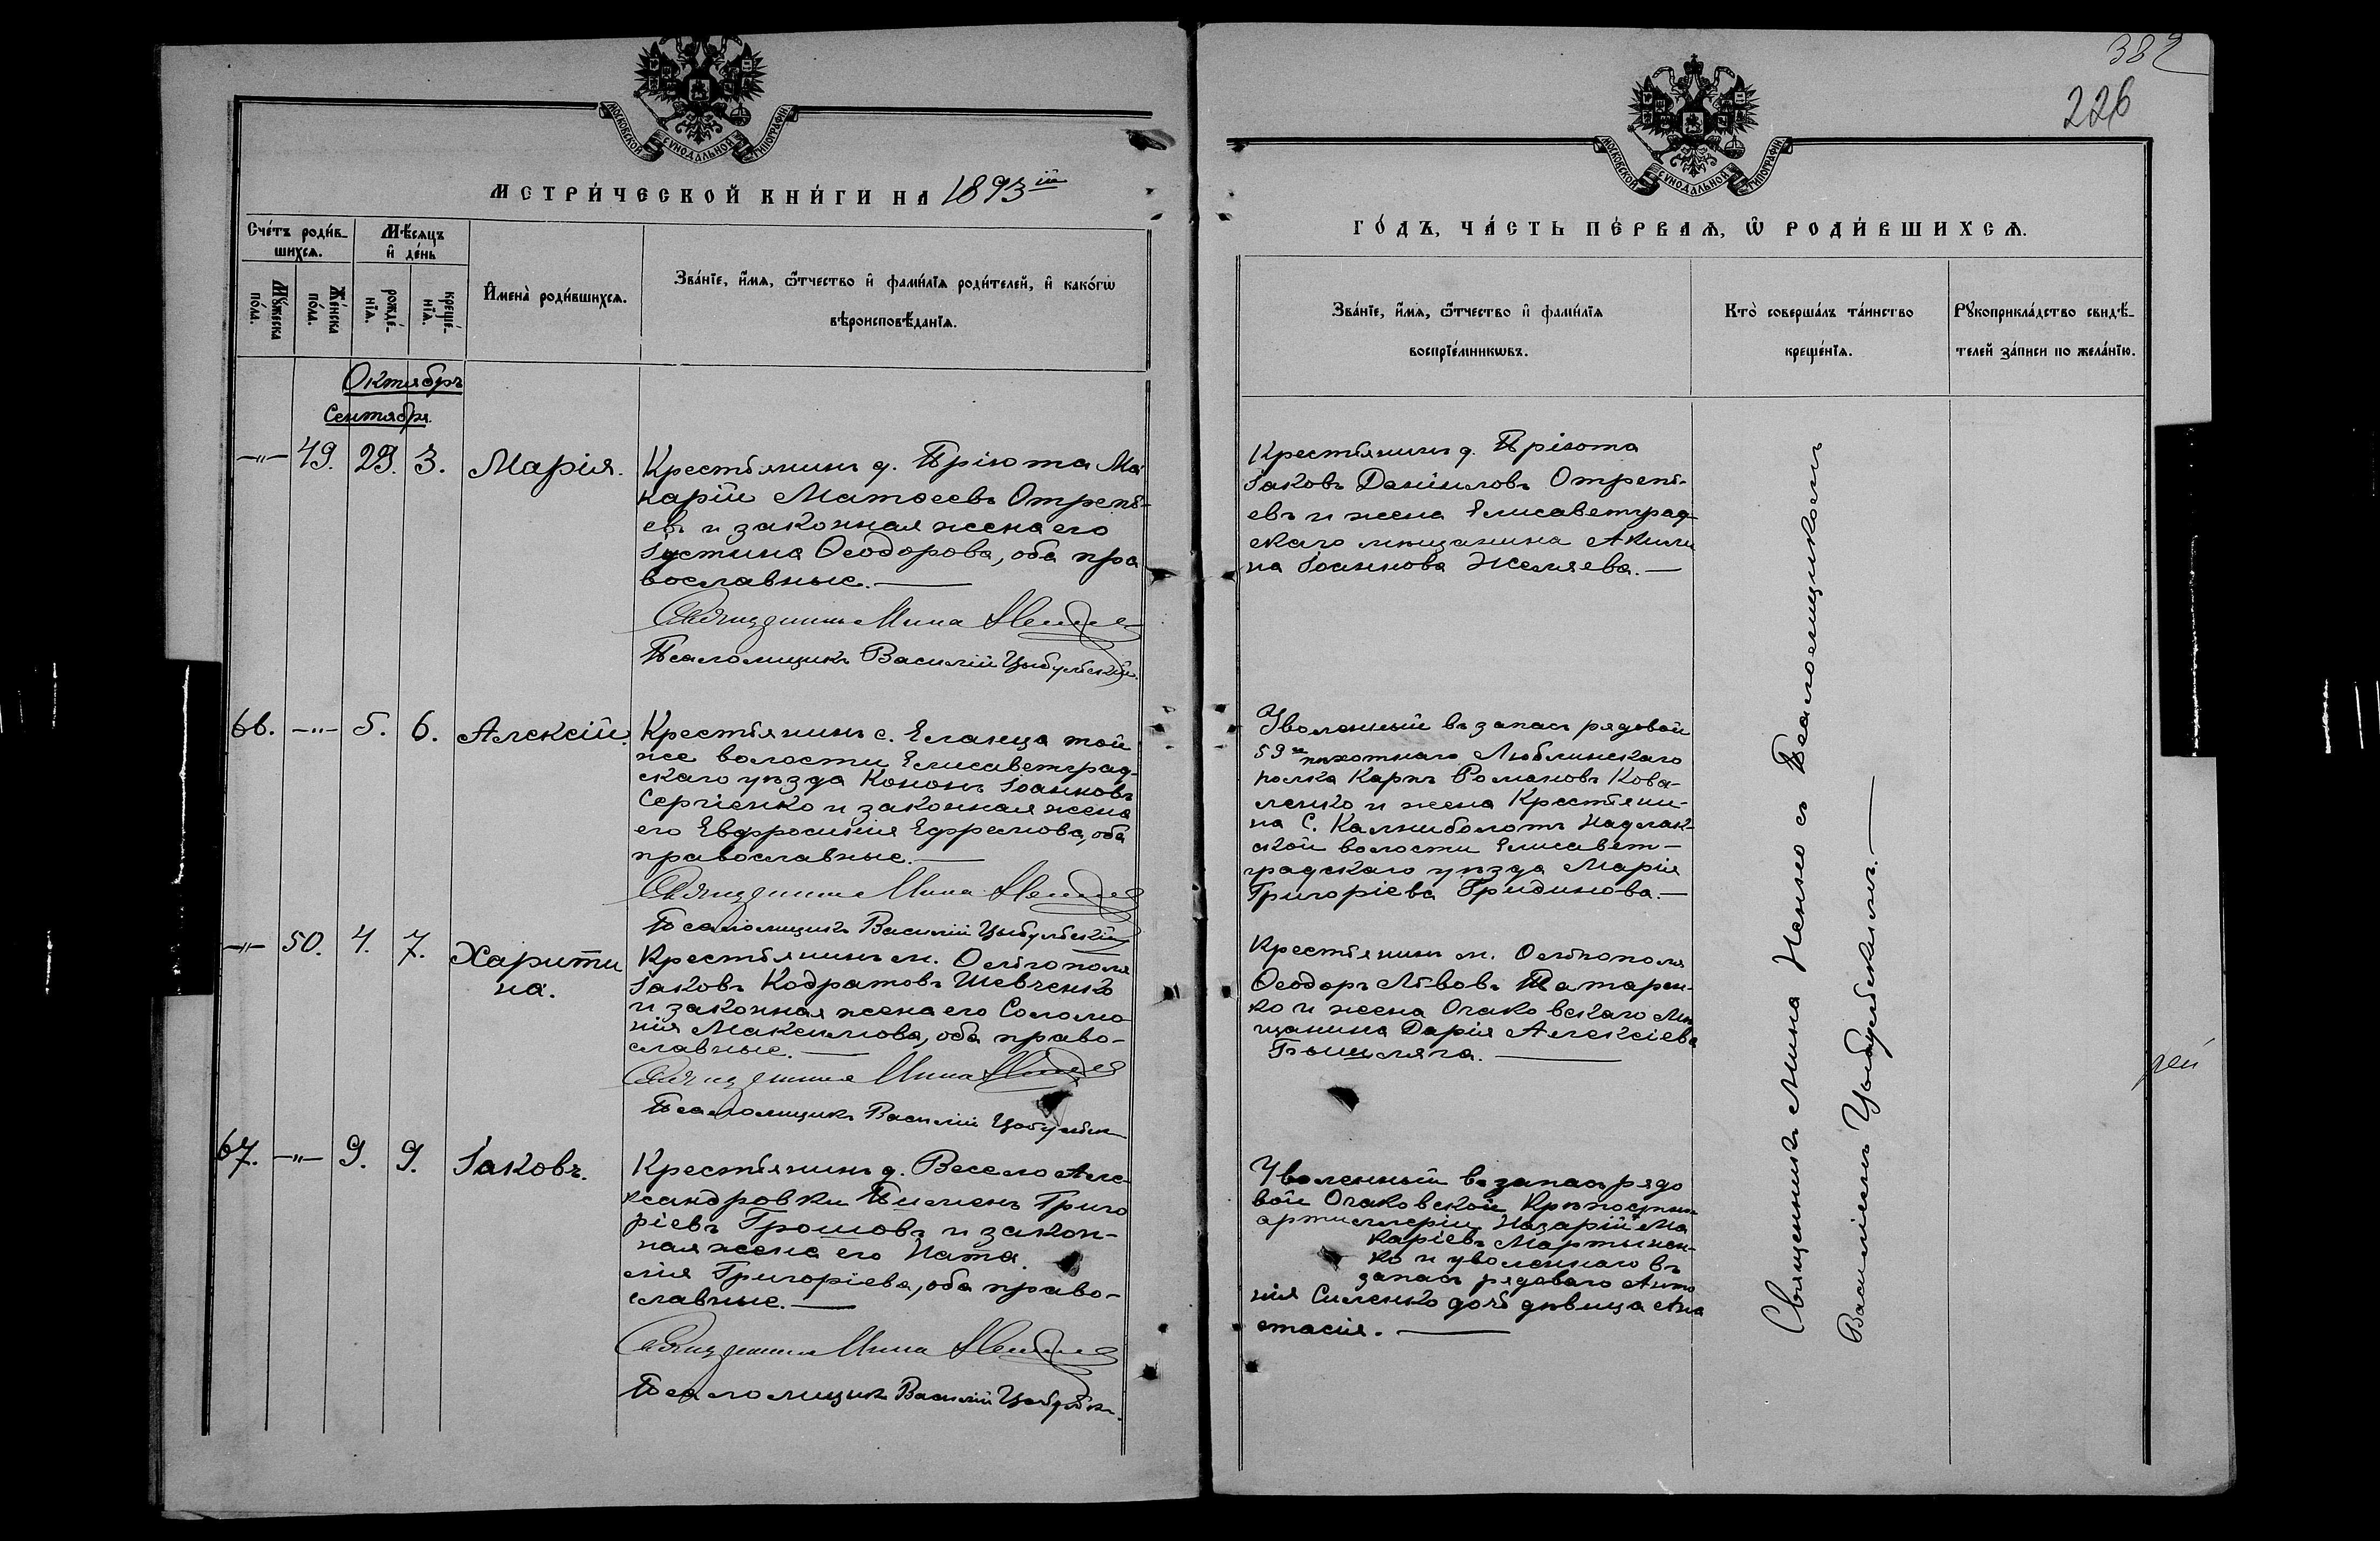 МОСКОВСКОЙ СѴНОДАЛЬНОЙ ТИПОГРАФІИ
МЕТРИ́ЧЕСКОЙ КНИ́ГИ НА 1893 ій
Сче́тъ роди́в-
шихсѧ.
Мѣ́сяцъ
и҆ де́нь
Мꙋ́жеска
по́ла.
Же́нска
по́ла.
рожде́-
нїѧ.
креще́-
нїѧ.
И҆мена̀ роди́вшихсѧ.
Зва́нїе, и҆́мѧ, ѻ҆́тчество и҆ фами́лїѧ роди́телей, и҆ како́гѡ
вѣроисповѣ́данїѧ.
Октябрь
Сентября
-"- 49. 29. 3. Марія.
Крестьянинъ д. Пріюта Ма
карій Матѳеевъ Отрепь-
евъ и законная жена его
Іустина Ѳеодорова, оба пра
вославные.—
Священникъ Мина
Псаломщикъ Василій Цыбульскій.
66. -"- 5. 6. Алексій.
Крестьянинъ с. Еланца той
же волости Елисаветград-
скаго уѣзда Кононъ Іоанновъ
Сергіенко и законная жена
его Евфросинія Ефремова, оба
православные.—
Священникъ Мина
Псаломщикъ Василій Цыбульскій
-"- 50. 4. 7. Харити
на.
Крестьянинъ м. Ольгополя
Іаковъ Кодратовъ Шевченко
и законная жена его Соломо
нія Максимова, оба право-
славные.—
Священникъ Мина
Псаломщикъ Василій Цыбульск
67. -"- 9. 9. Іаковъ.
Крестьянинъ д. Весело Але-
ксандровки Пименъ Григо
ріевъ Грошовъ и закон-
ная жена его Ната
лія Григоріева, оба право-
славные.—
Священникъ Мина
Псаломщикъ Василій Цыбульск.
382
226
МОСКОВСКОЙ СѴНОДАЛЬНОЙ ТИПОГРАФІИ
ГО́ДЪ, ЧА́СТЬ ПЕ́РВАѦ, Ѡ҆ РОДИ́ВШИХСѦ.
Зва́нїе, и҆́мѧ, ѻ҆́тчество и҆ фами́лїѧ
воспрїе́мникѡвъ.
Кто̀ соверша́лъ та́инство
креще́нїѧ.
Рꙋкоприкла́дство свидѣ́-
телей за́писи по жела́нїю.
Крестьянинъ д. Пріюта
Іаковъ Даніиловъ Отрепь-
евъ и жена Елисаветград-
скаго мѣщанина Акили
на Іоаннова Желяева.—
Уволенный въ запасъ рядовой
59го пѣхотнаго Люблинскаго
полка Карпъ Романовъ Кова-
ленко и жена Крестьяни-
на С. Калниболотъ Надлак-
ской волости Елисавет-
градскаго уѣзда Марія
Григоріева Гридинова.—
Крестьянинъ м. Ольгополя
Ѳеодоръ Львовъ Татарен-
ко и жена Очаковскаго мѣ
щанина Дарія Алексіева
Уволенный въ запасъ рядо
вой Очаковской Крѣпостной
артиллеріи Назарій Ма
каріевъ Мартынен-
ко и уволеннаго въ
запасъ рядоваго Анто
нія Силенко дочь дѣвица Ана
стасія.—
Священникъ Мина Ненно съ Псаломщикомъ
Василіемъ Цыбульскимъ.—
рей